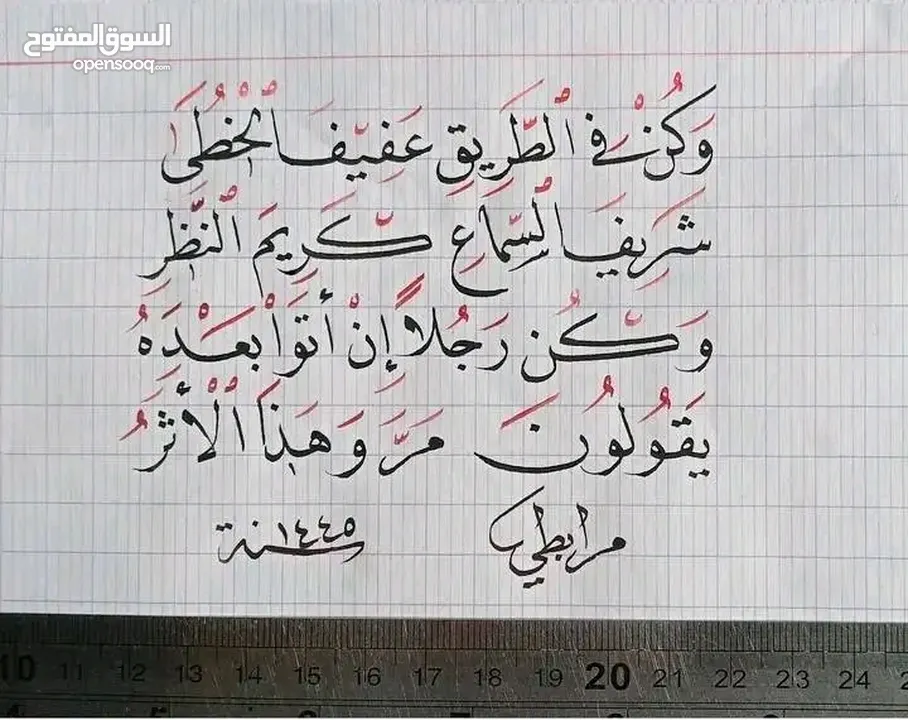 السوق المفتوح
opensooq.com
وَكُنْ في الْطَّرَيِقِ عَفِيّفَ الْخْطُىَ
شَرَيِفَ الْسِّمَاَعِ كَرِيمَ الْنَّظَرِ
وَكُن رَجُلاً إِنْ أَتَوْا بَعْدَهُ
يَقُولُونَ مَرَّ وَهَذَا الْأَثَرُ
مرابطي سنة ١٤٤٥
10 11 12 13 14 15 16 17 18 19 20 21 22 23 24